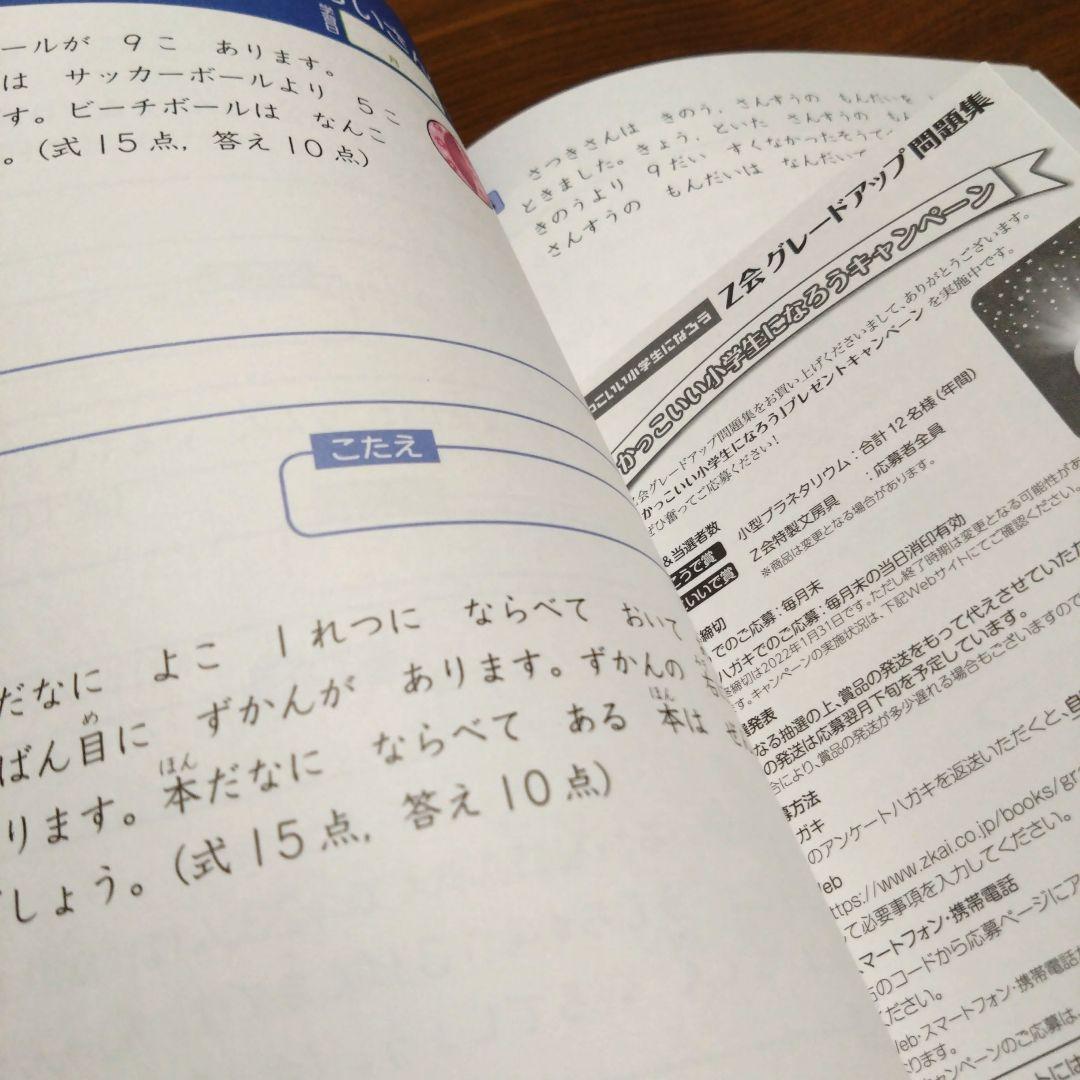 ールが 9こ あります。
は サッカーボールより 5こ
す。ビーチボールは なんこ
。(式15点, 答え10点)
こたえ
だなに よこ 1れつに ならべて おいて
ばん目に ずかんが あります。ずかんの
ります。本だなに ならべて ある 本は
しょう。(式15点, 答え10点)
さつきさんは きのう、さんすうの もんだいを
ときました。きょう、といた さんすうの
きのうより 9だい すくなかったそうで
さんすうの もんだいは なんだい
っこいい小学生になろう
Z会グレードアップ問題集
かっこいい小学生になろうキャンペーン
Z会グレードアップ問題集をお買い上げくださいまして、ありがとうございます。
かっこいい小学生になろう!プレゼントキャンペーン を実施中です。
ぜひ奮ってご応募ください!
&当選者数
こうで賞
小型プラネタリウム:合計12名様(年間)
いいで賞
Z会特製文房具 :応募者全員
※商品は変更となる場合があります。
締切
でのご応募:毎月末
ハガキでのご応募:毎月末の当日消印有効
締切は2022年1月31日です。ただし終了時期は変更となる可能性があ
す。キャンペーンの実施状況は、下記Webサイトにてご確認ください。
発表
なる抽選の上、賞品の発送をもって代えさせていただ
の発送は応募翌月下旬を予定しています。
合により、賞品の発送が多少遅れる場合もございますので
募方法
ガキ
のアンケートハガキを返送いただくと、自
eb
ttps://www.zkai.co.jp/books/gr
て必要事項を入力してください。
マートフォン・携帯電話
のコードから応募ページにア
ください。
eb・スマートフォン・携帯電話
ります。
キャンペーンのご応募は、